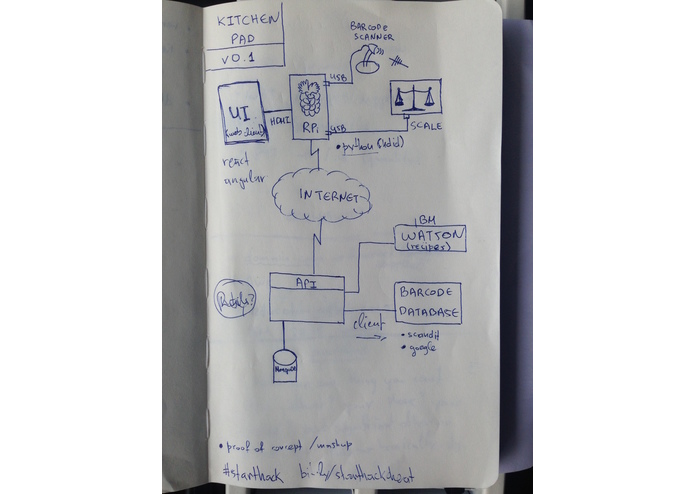 KITCHEN
PAD
v0.1
BARCODE
SCANNER
USB
UI
(web client)
HDMI
RPi
USB
SCALE
• python (
react
angular
INTERNET
IBM
WATSON
(recipes)
API
BARCODE
DATABASE
client
• scandit
• google
• proof of concept / mashup
#starthack